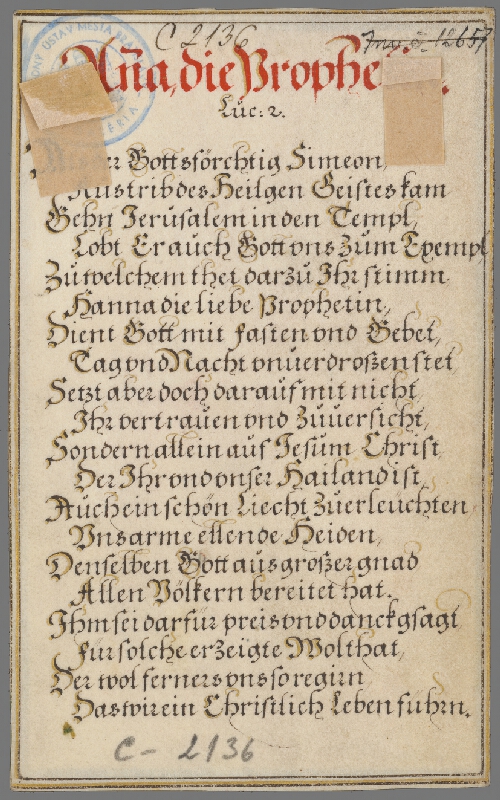 C 2136
Inv. č. 12657
Aña, die Prophe
Luc: 2.
er Gottsförchtig Simeon,
Aus trib des Heilgen Geistes kam
Gehn Jerusalem in den Templ,
Lobt Er auch Gott vns zum Exempl
Zu welchem thet darzu Ihr stimm
Hanna die liebe Prophetin,
Dient Gott mit fasten vnd Gebet,
Tag vnd Nacht vnuerdroßen stet
Setzt aber doch darauf mit nicht,
Ihr vertrauen vnd Zuuersicht,
Sondern allein auf Jesum Christ
Der Ihr vnd vnser Hailand ist,
Auch ein schön Liecht zu erleuchten
Vns arme ellende Heiden,
Denselben Gott aus großer gnad
Allen Völkern bereitet hat.
Ihm sei darfür preis vnd danck gsagt
für solche erzeigte Wolthat,
Der wol ferner vns so regirn
Das wir ein Christlich Leben fuhrn.
C - 2136